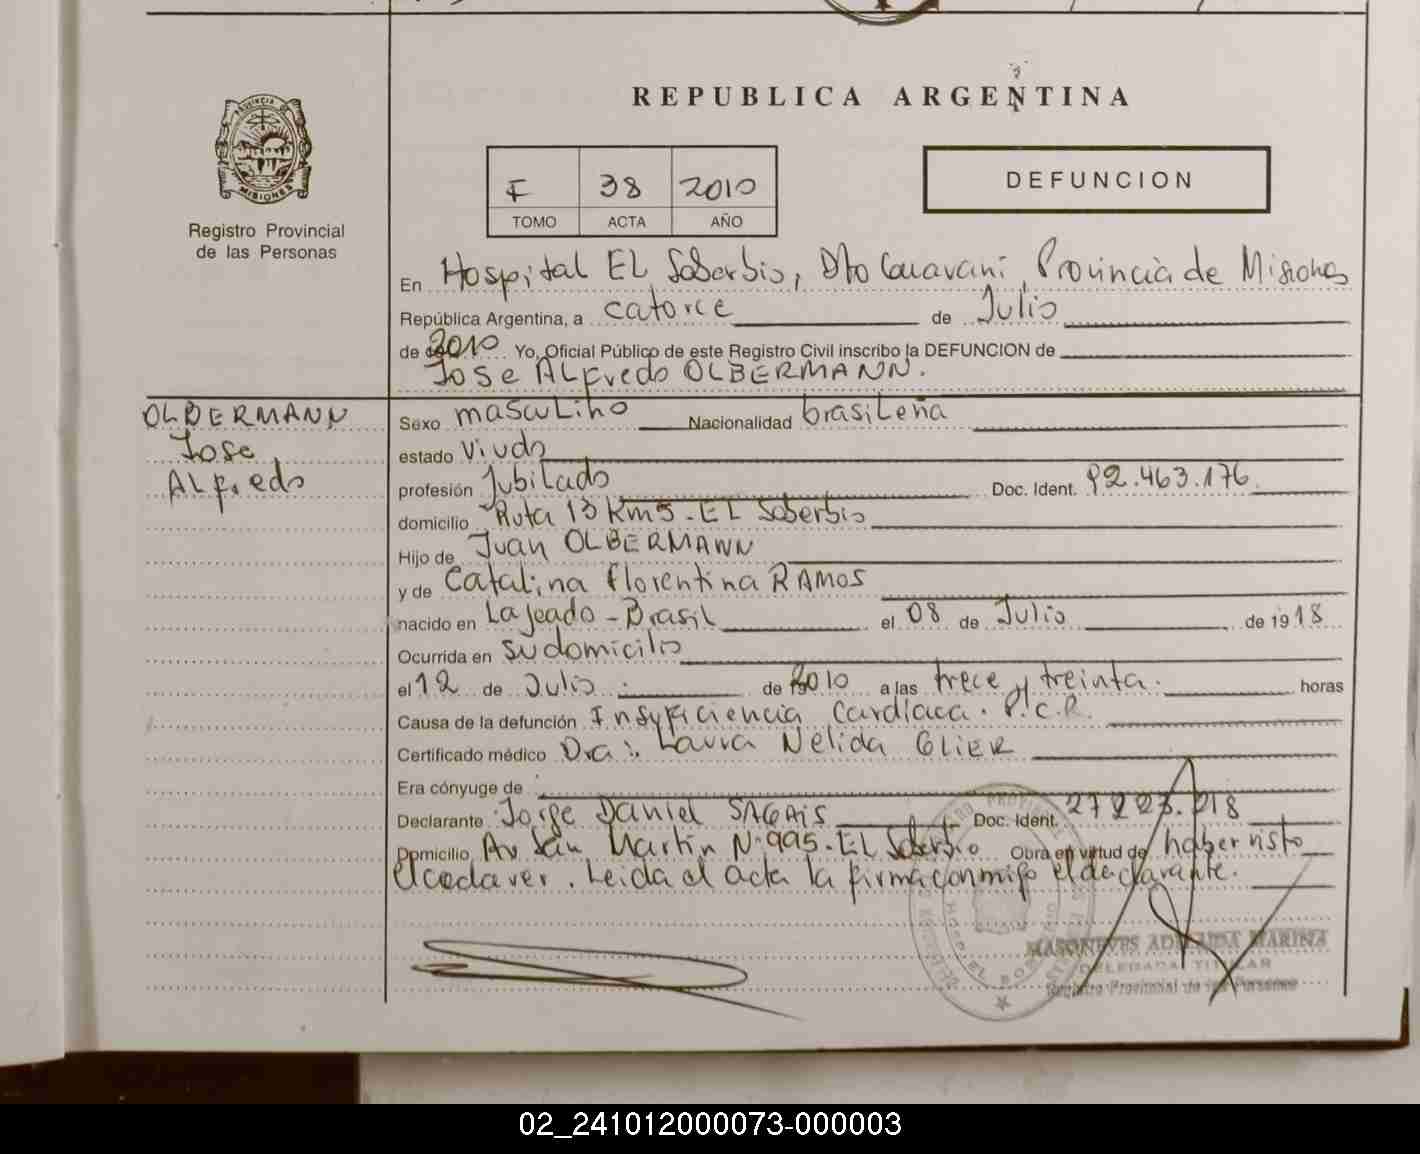 REPUBLICA ARGENTINA
PROVINCIA DE
MISIONES
Registro Provincial
de las Personas
F 38 2010
TOMO ACTA AÑO
DEFUNCION
En Hospital EL Soberbio, Dto Guarani, Provincia de Misiones
República Argentina, a catorce de Julio
de 2010 Yo, Oficial Público de este Registro Civil inscribo la DEFUNCION de
Jose ALfredo OLBERMANN.
OLBERMANN
Jose
ALfredo
Sexo masculino Nacionalidad brasileña
estado Viudo
profesión Jubilado Doc. Ident. 92.463.176
domicilio Ruta 13 Km5 - EL Soberbio
Hijo de Juan OLBERMANN
y de Catalina Florentina RAMOS
nacido en Lajeado - Brasil el 08 de Julio de 1918
Ocurrida en su domicilio
el 12 de Julio de 2010 a las trece y treinta. horas
Causa de la defunción Insuficiencia Cardiaca. P.C.R.
Certificado médico Dra: Laura Nelida GLIER
Era cónyuge de
Declarante Jorge Daniel SAGAIS Doc. Ident. 27 223.218
Domicilio Av San Martin N° 995 - EL Soberbio Obra en virtud de haber visto
el cadaver. Leida el acta la firma conmigo el declarante.
MASONEVES ADELAIDA MARINA
DELEGADA TITULAR
Registro Provincial de las Personas
02_241012000073-000003